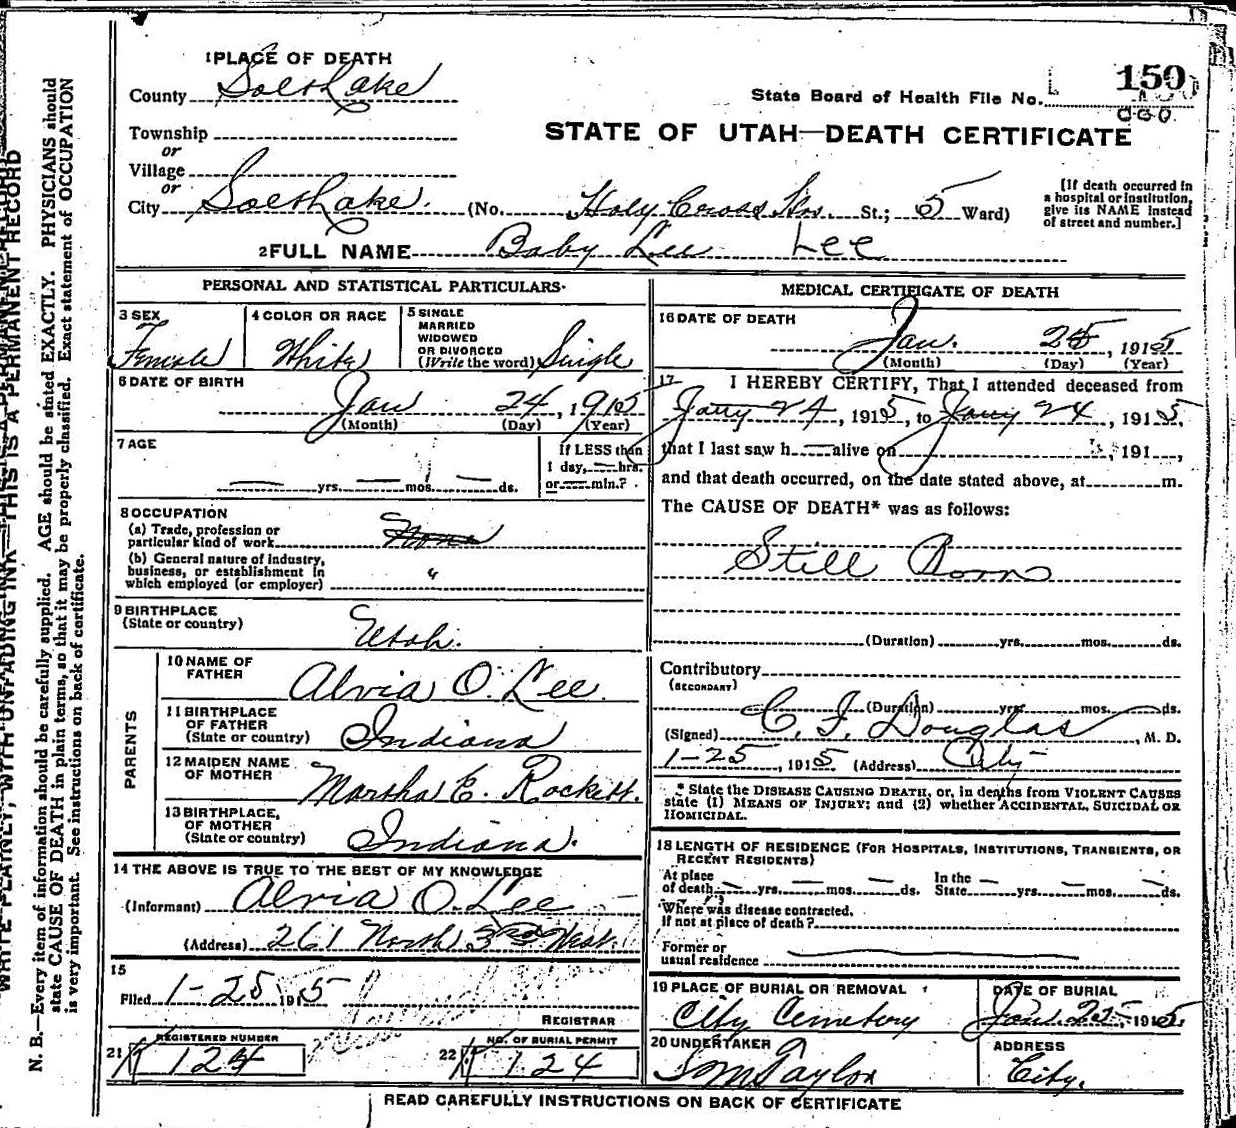 WRITE PLAINLY, WITH UNFADING INK—THIS IS A PERMANENT RECORD
N. B.—Every item of information should be carefully supplied. AGE should be stated EXACTLY. PHYSICIANS should
state CAUSE OF DEATH in plain terms, so that it may be properly classified. Exact statement of OCCUPATION
is very important. See instructions on back of certificate.
1 PLACE OF DEATH
County Salt Lake
State Board of Health File No. 150
Township
or
Village
or
STATE OF UTAH—DEATH CERTIFICATE
City Salt Lake. (No. Holy Cross Hos. St.; 5 Ward)
[If death occurred in
a hospital or institution,
give its NAME instead
of street and number.]
2 FULL NAME Baby Lee Lee
PERSONAL AND STATISTICAL PARTICULARS
3 SEX
Female
4 COLOR OR RACE
White
5 SINGLE
MARRIED
WIDOWED
OR DIVORCED
(Write the word) Single
6 DATE OF BIRTH
Jan 24, 1915
(Month) (Day) (Year)
7 AGE
yrs. mos. ds.
If LESS than
1 day, hrs.
or min.?
8 OCCUPATION
(a) Trade, profession or
particular kind of work None
(b) General nature of industry,
business, or establishment in
which employed (or employer) "
9 BIRTHPLACE
(State or country) Utah.
PARENTS
10 NAME OF
FATHER Alvia O. Lee.
11 BIRTHPLACE
OF FATHER
(State or country) Indiana
12 MAIDEN NAME
OF MOTHER Martha E. Rockett.
13 BIRTHPLACE,
OF MOTHER
(State or country) Indiana.
14 THE ABOVE IS TRUE TO THE BEST OF MY KNOWLEDGE
(Informant) Alvia O. Lee
(Address) 261 North 3rd West.
15
Filed 1-25 1915
REGISTRAR
21 REGISTERED NUMBER
K 124
22 NO. OF BURIAL PERMIT
K 124
MEDICAL CERTIFICATE OF DEATH
16 DATE OF DEATH
Jan. 25, 1915
(Month) (Day) (Year)
17 I HEREBY CERTIFY, That I attended deceased from
Jany 24, 1915, to Jany 24, 1915,
that I last saw h alive on , 191 ,
and that death occurred, on the date stated above, at m.
The CAUSE OF DEATH* was as follows:
Still Born
(Duration) yrs. mos. ds.
Contributory
(SECONDARY)
(Duration) yrs. mos. ds.
(Signed) C. F. Douglas, M. D.
1-25, 1915 (Address) City
* State the DISEASE CAUSING DEATH, or, in deaths from VIOLENT CAUSES
state (1) MEANS OF INJURY; and (2) whether ACCIDENTAL, SUICIDAL OR
HOMICIDAL.
18 LENGTH OF RESIDENCE (FOR HOSPITALS, INSTITUTIONS, TRANSIENTS, OR
RECENT RESIDENTS)
At place
of death yrs. mos. ds.
In the
State yrs. mos. ds.
Where was disease contracted,
If not at place of death?
Former or
usual residence
19 PLACE OF BURIAL OR REMOVAL
City Cemetery
DATE OF BURIAL
Jan. 25, 1915
20 UNDERTAKER
S M Taylor
ADDRESS
City.
READ CAREFULLY INSTRUCTIONS ON BACK OF CERTIFICATE